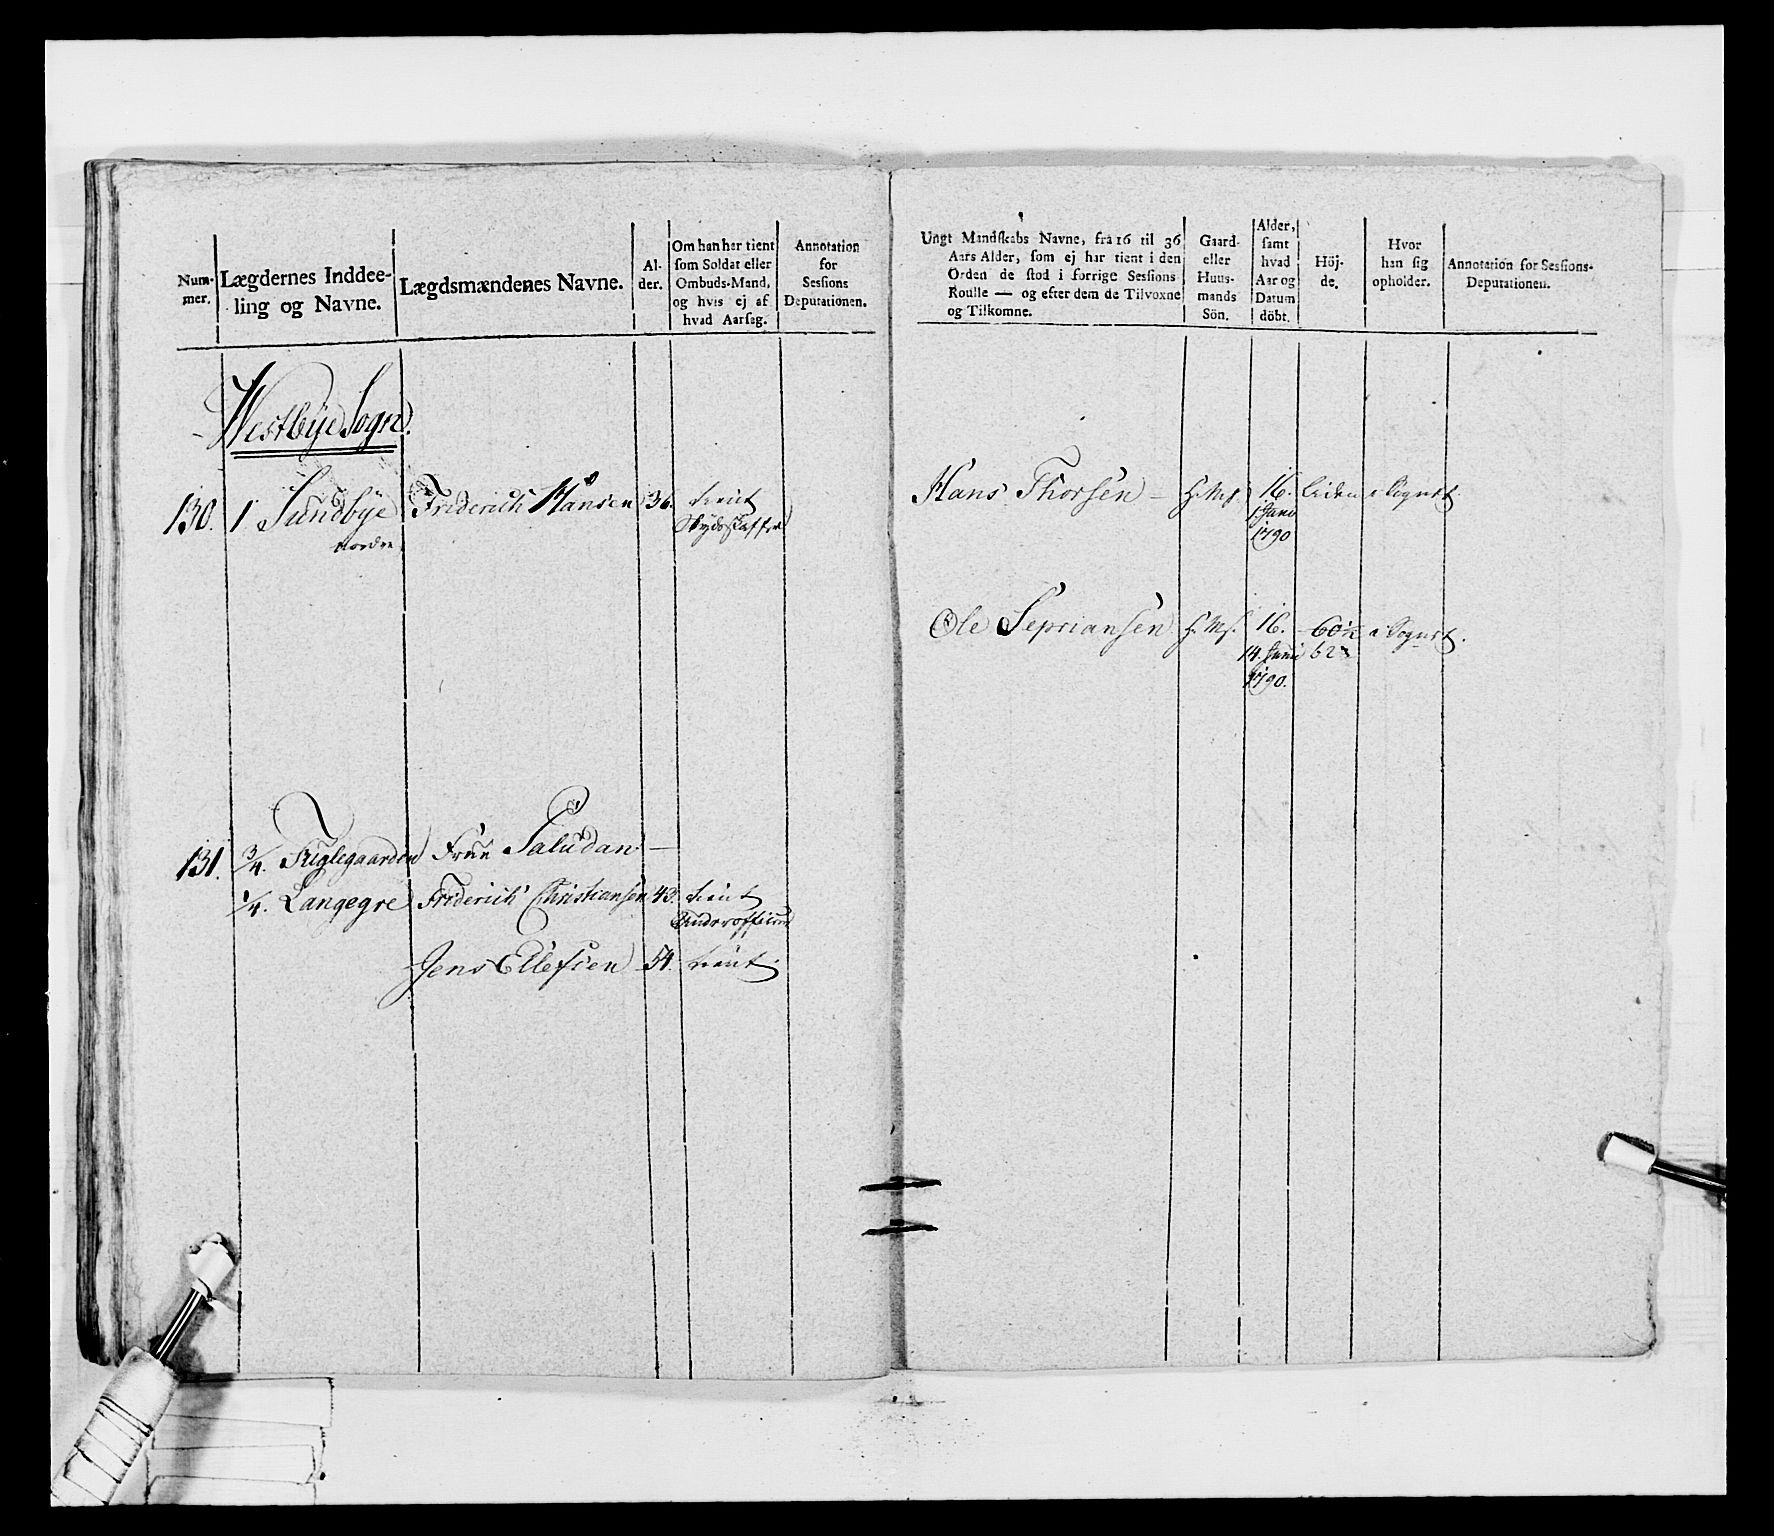 Num-
mer.
Lægdernes Inddee-
ling og Navne.
Lægdsmændenes Navne.
Al-
der.
Om han har tient
som Soldat eller
Ombuds-Mand,
og hvis ej af
hvad Aarsag.
Annotation
for
Sessions
Deputationen.
Westbye Sogn.
130. 1 Sundbye Friderich Hansen 36. tient
nordre Skydsskaffer
131. 3/4. Teglegaarden Frue Saludan —
1/4. Langegre Friderich Christiansen 43. tient
Underofficeer
Jens Ellefsen 54. tient.
Ungt Mandskabs Navne, fra 16 til 36
Aars Alder, som ej har tient i den
Orden de stod i forrige Sessions
Roulle — og efter dem de Tilvoxne
og Tilkomne.
Gaard-
eller
Huus-
mands
Sön.
Alder,
samt
hvad
Aar og
Datum
döbt.
Höj-
de.
Hvor
han sig
opholder.
Annotation for Sessions-
Deputationen.
Hans Thorsen — H.M.S. 16. liden i Sognet.
1 Juni
1790
Ole Sepriansen H.M.S. 16. 60½ i Sognet.
14. Juni 62
1790.